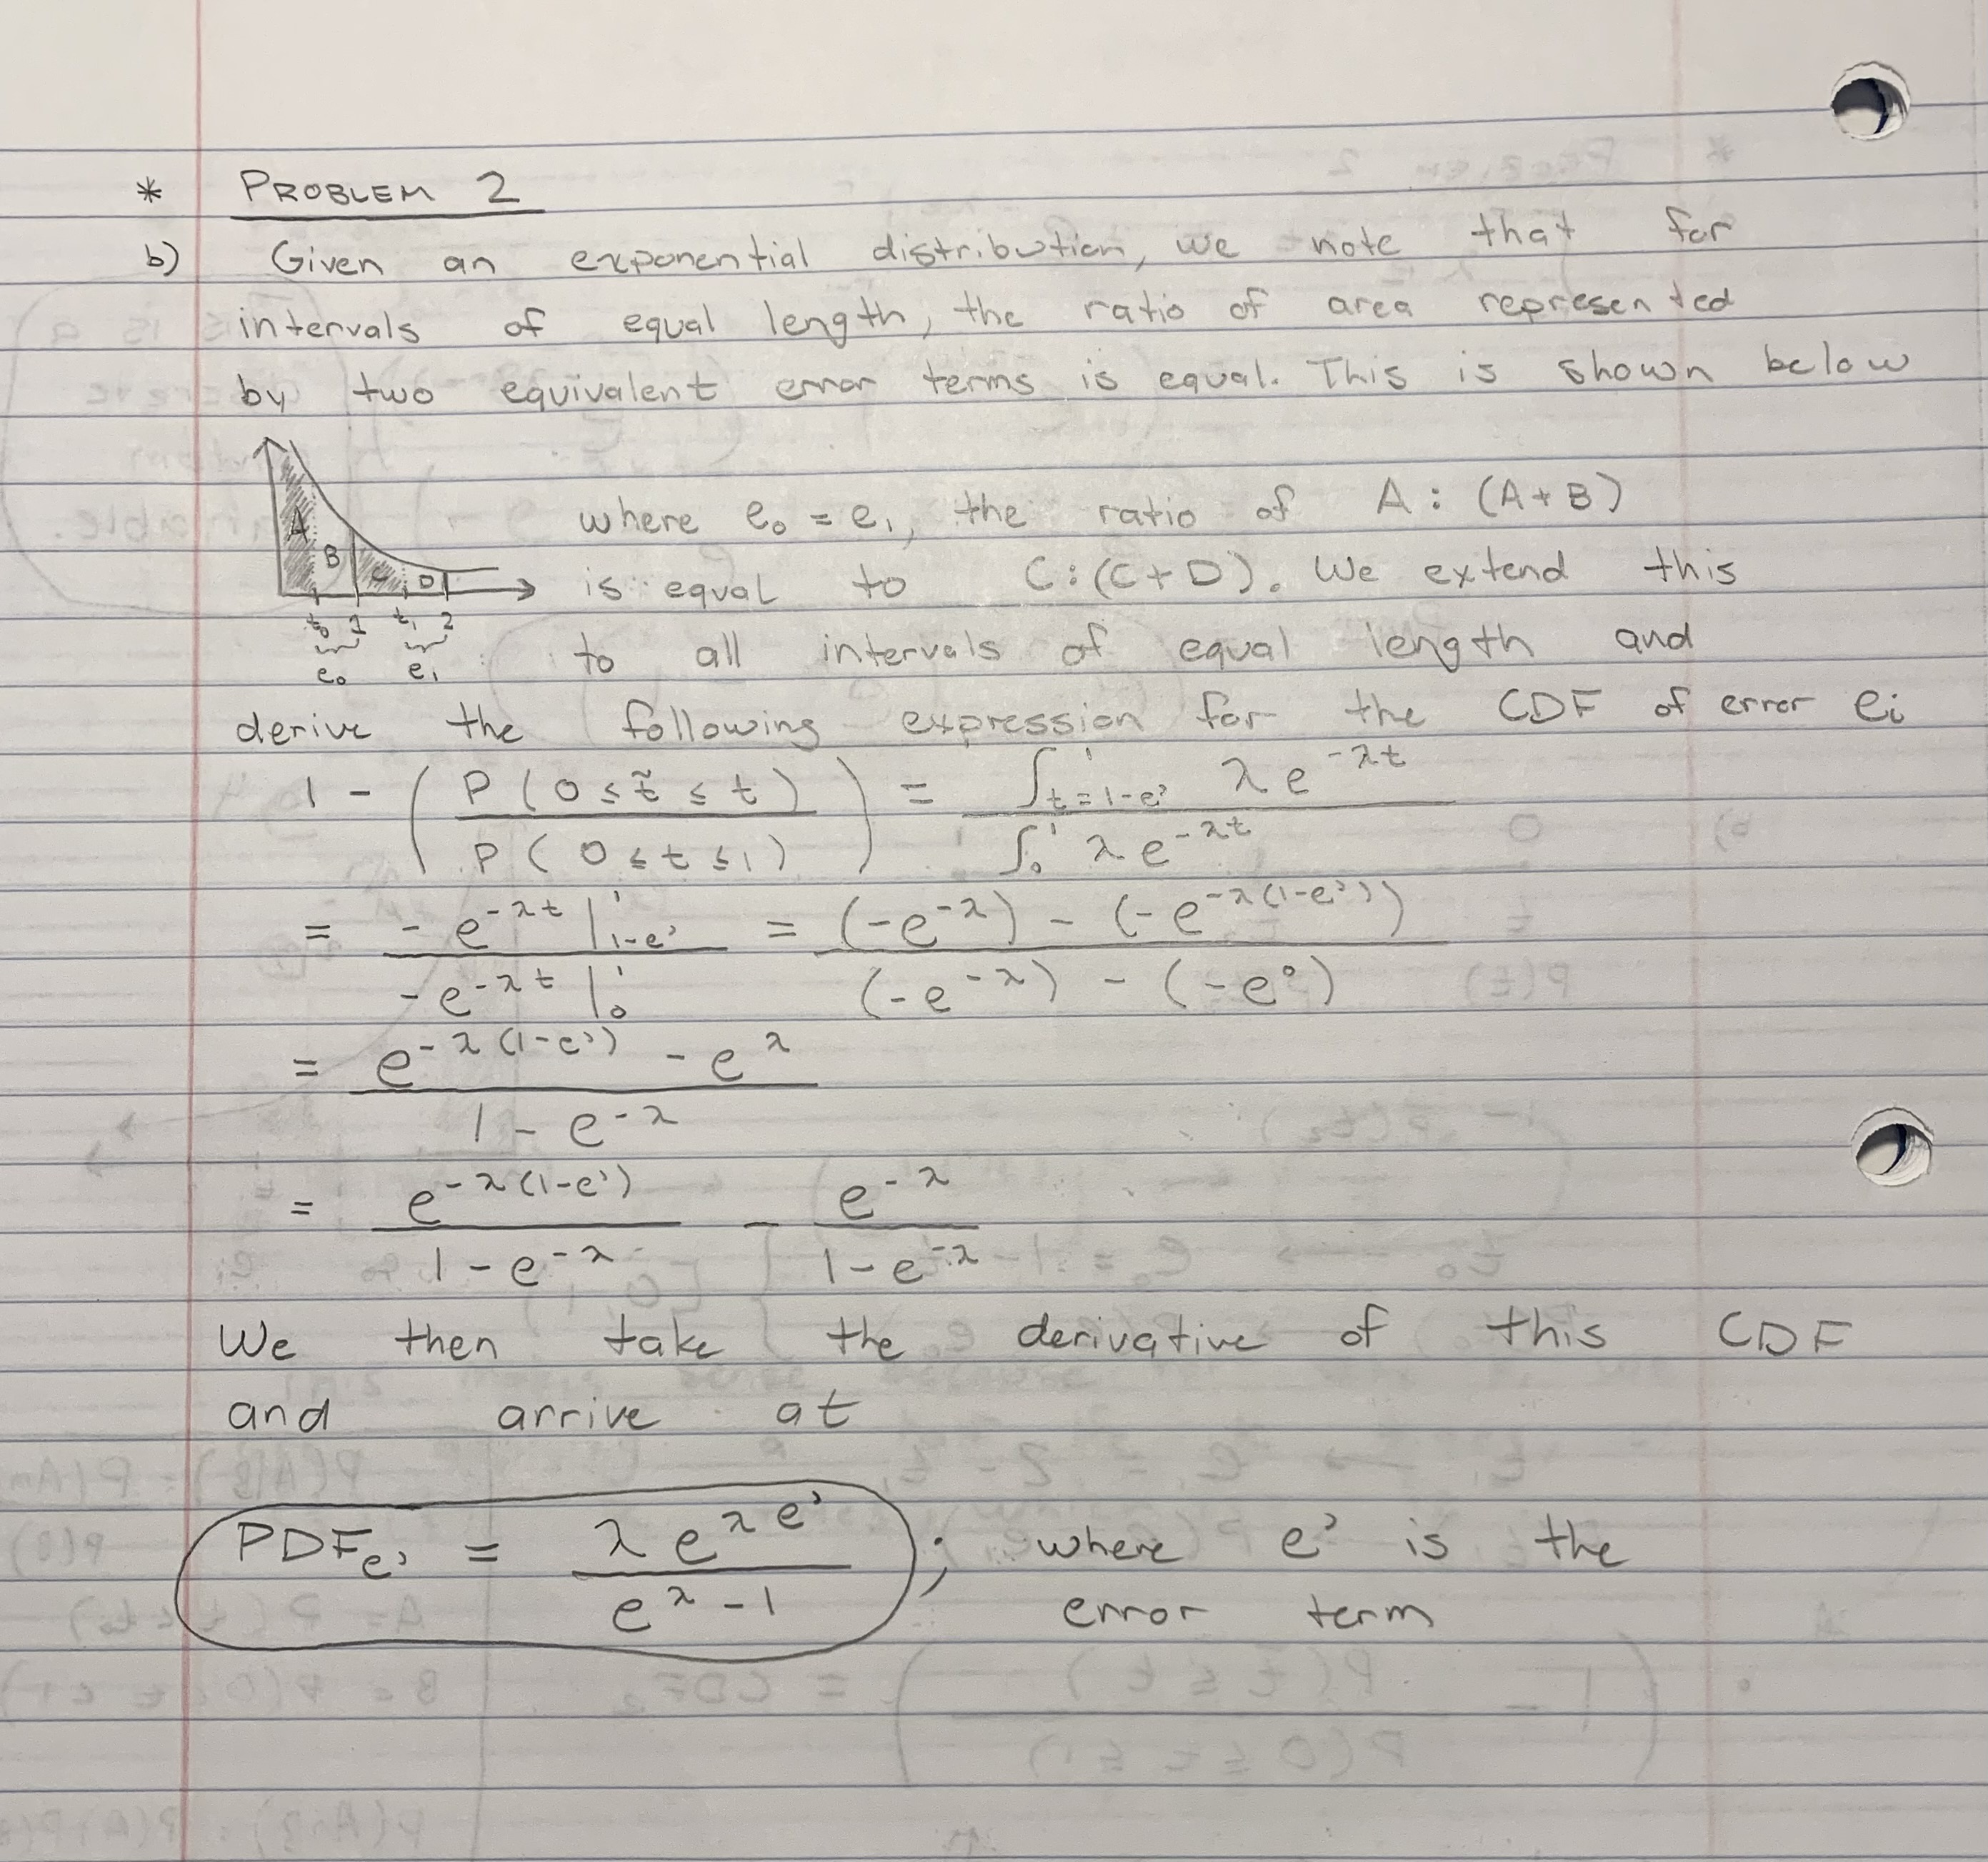 * PROBLEM 2
b) Given an exponential distribution, we note that for
intervals of equal length, the ratio of area represented
by two equivalent error terms is equal. This is shown below
A B C D
t₀ 1 t₁ 2
e₀ e₁
where e₀ = e₁, the ratio of A : (A+B)
is equal to C : (C+D). We extend this
to all intervals of equal length and
derive the following expression for the CDF of error eᵢ
1 - ( P(0 ≤ t̃ ≤ t) / P(0 ≤ t ≤ 1) ) = ∫_{t=1-e'}^{1} λe^{-λt} / ∫_0^1 λe^{-λt}
= -e^{-λt} |_{1-e'}^{1} / -e^{-λt} |_0^1 = (-e^{-λ}) - (-e^{-λ(1-e')}) / (-e^{-λ}) - (-e^0)
= e^{-λ(1-e')} - e^{λ} / 1 - e^{-λ}
= e^{-λ(1-e')} / 1 - e^{-λ} - e^{-λ} / 1 - e^{-λ}
We then take the derivative of this CDF
and arrive at
PDF_{e'} = λe^{λe'} / e^{λ} - 1 ; where e' is the
error term